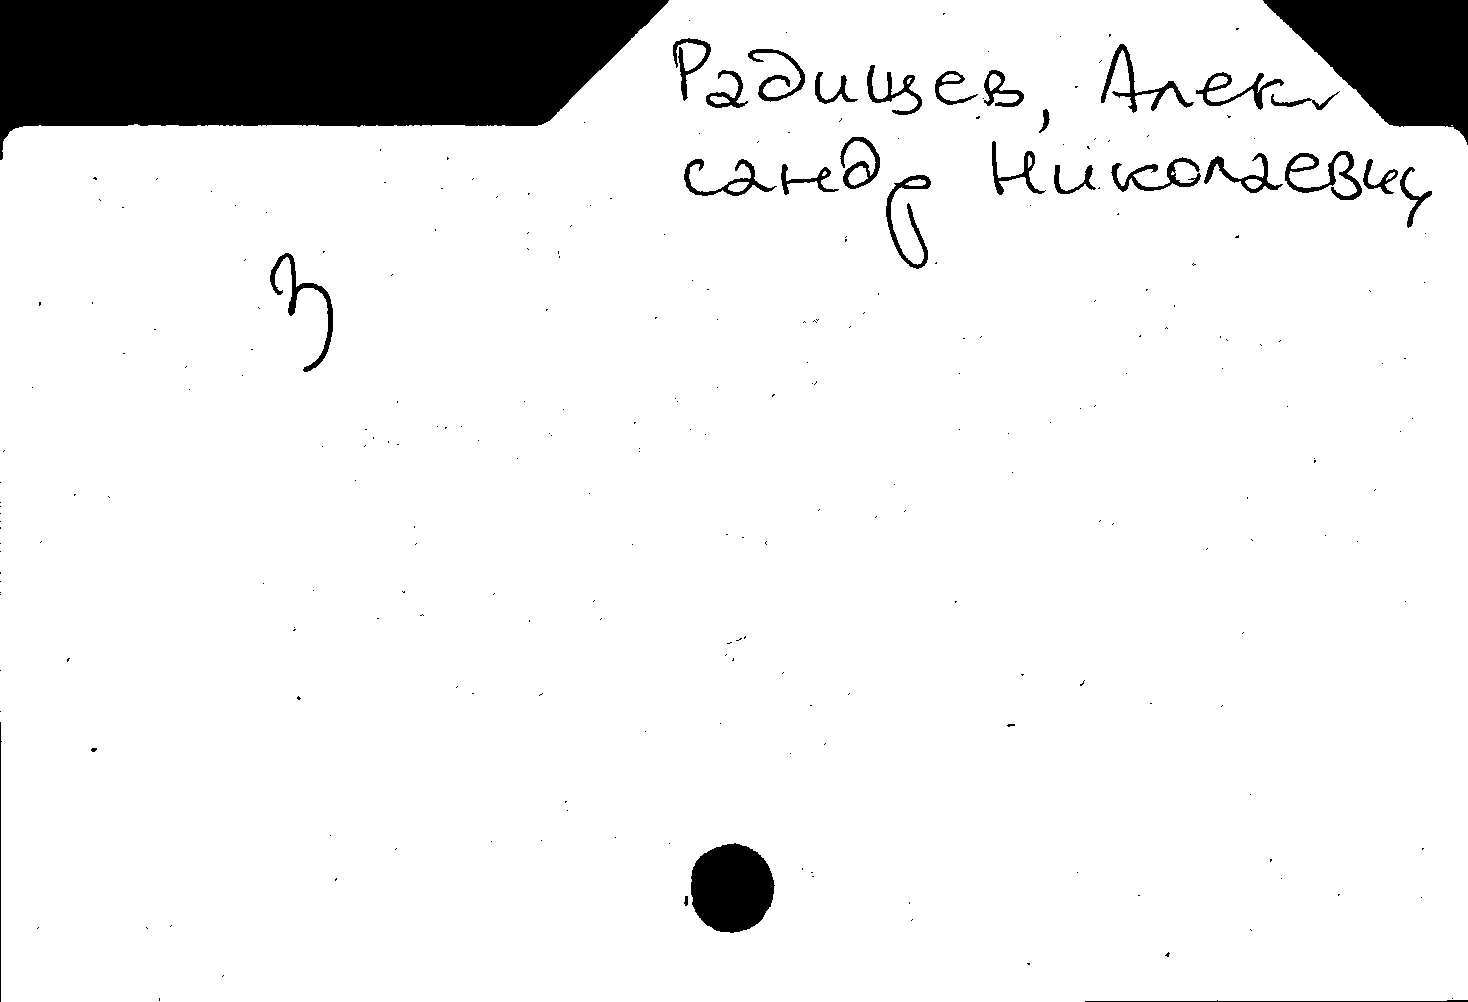 Радищев, Алек-
сандр Николаевич